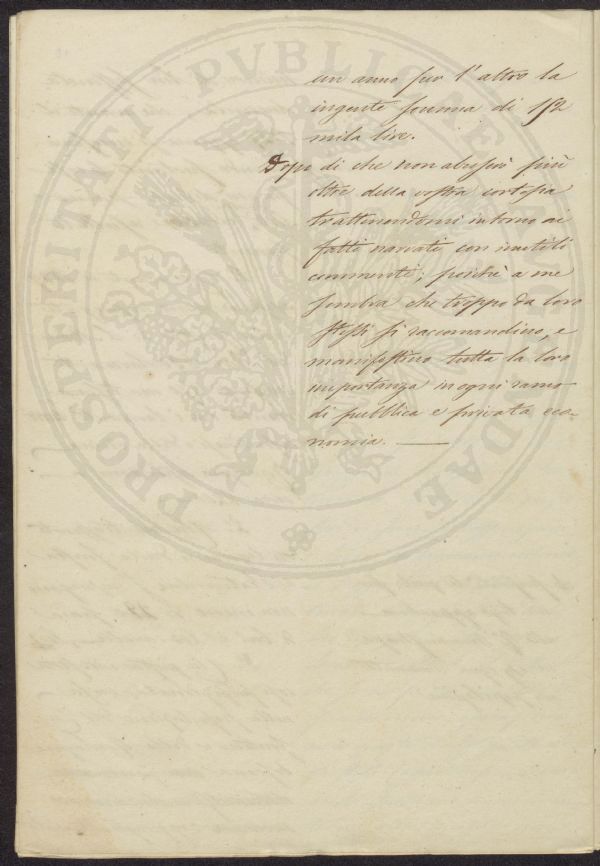 PROSPERITATI PVBLICAE AVGENDAE
un anno per l'altro la
ingente somma di 152
mila lire.
Dopo di che non abuserò più
oltre della vostra cortesia
trattenendomi intorno ai
fatti narrati con inutili
commenti; poichè a me
sembra che troppo da loro
stessi si raccomandino, e
manifestino tutta la loro
importanza in ogni ramo
di pubblica e privata eco-
nomia. —